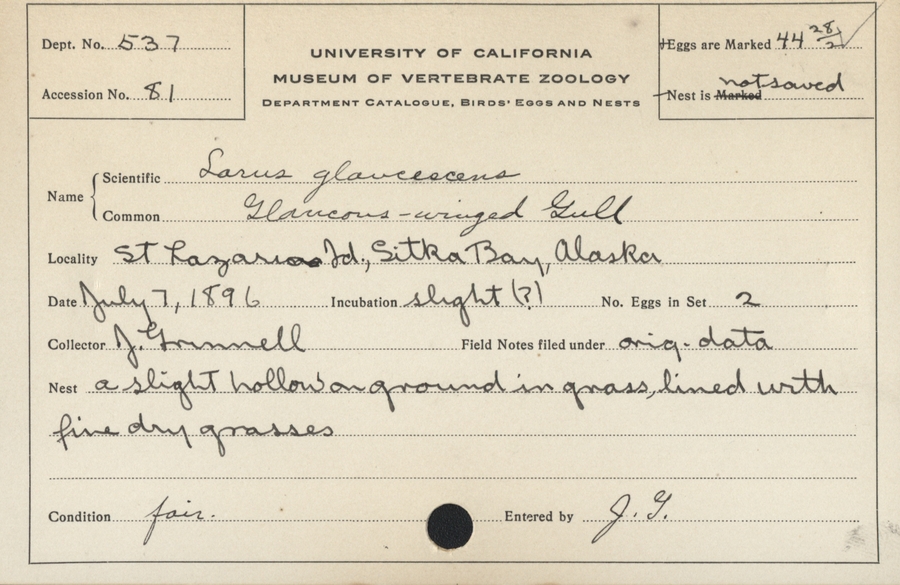 Dept. No. 537
Accession No. 81
UNIVERSITY OF CALIFORNIA
MUSEUM OF VERTEBRATE ZOOLOGY
DEPARTMENT CATALOGUE, BIRDS' EGGS AND NESTS
Eggs are Marked 44 28/2
Nest is Marked not saved
Name
Scientific Larus glaucescens
Common Glaucous-winged Gull
Locality St Lazaria Id., Sitka Bay, Alaska
Date July 7, 1896 Incubation slight (?) No. Eggs in Set 2
Collector J. Grinnell Field Notes filed under orig. data
Nest a slight hollow on ground in grass, lined with
fine dry grasses
Condition fair. Entered by J. G.